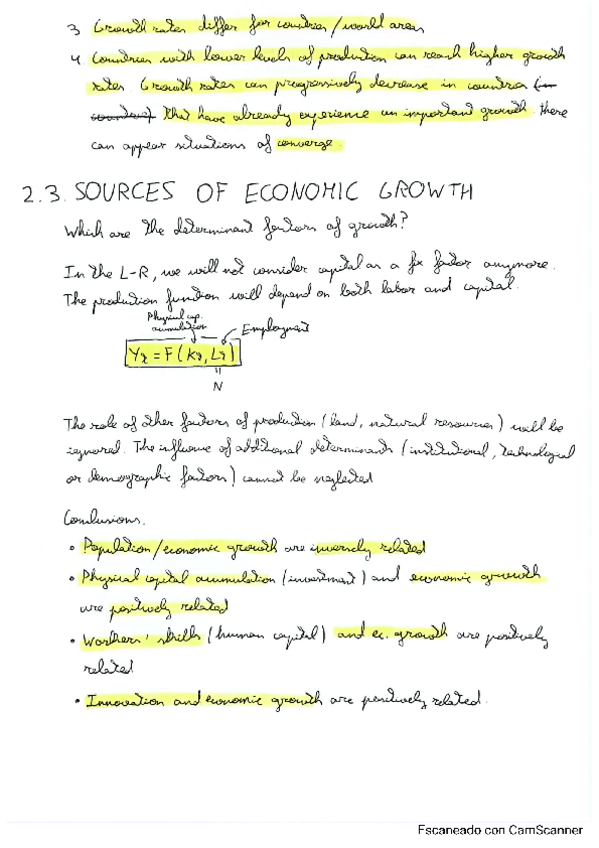 3 Growth rates differ for countries/world areas
4. Countries with lower levels of production can reach higher growth
rates. Growth rates can progressively decrease in countries (in
countries) that have already experience an important growth. there
can appear situations of converge.
2.3. SOURCES OF ECONOMIC GROWTH
Which are the determinant factors of growth?
In the L-R, we will not consider capital as a fix factor anymore.
The production function will depend on both labor and capital.
Physical cap.
acumulation
Employment
=
N
The role of other factors of production (land, natural resources) will be
ignored. The influence of additional determinants (institutional, technological
or demographic factors) cannot be neglected
Conclusions.
• Population/economic growth are inversely related
• Physical capital acumulation (investment) and economic growth
are positively related
• Workers' skills (human capital) and ec. growth are positively
related
• Innovation and economic growth are positively related.
Escaneado con CamScanner